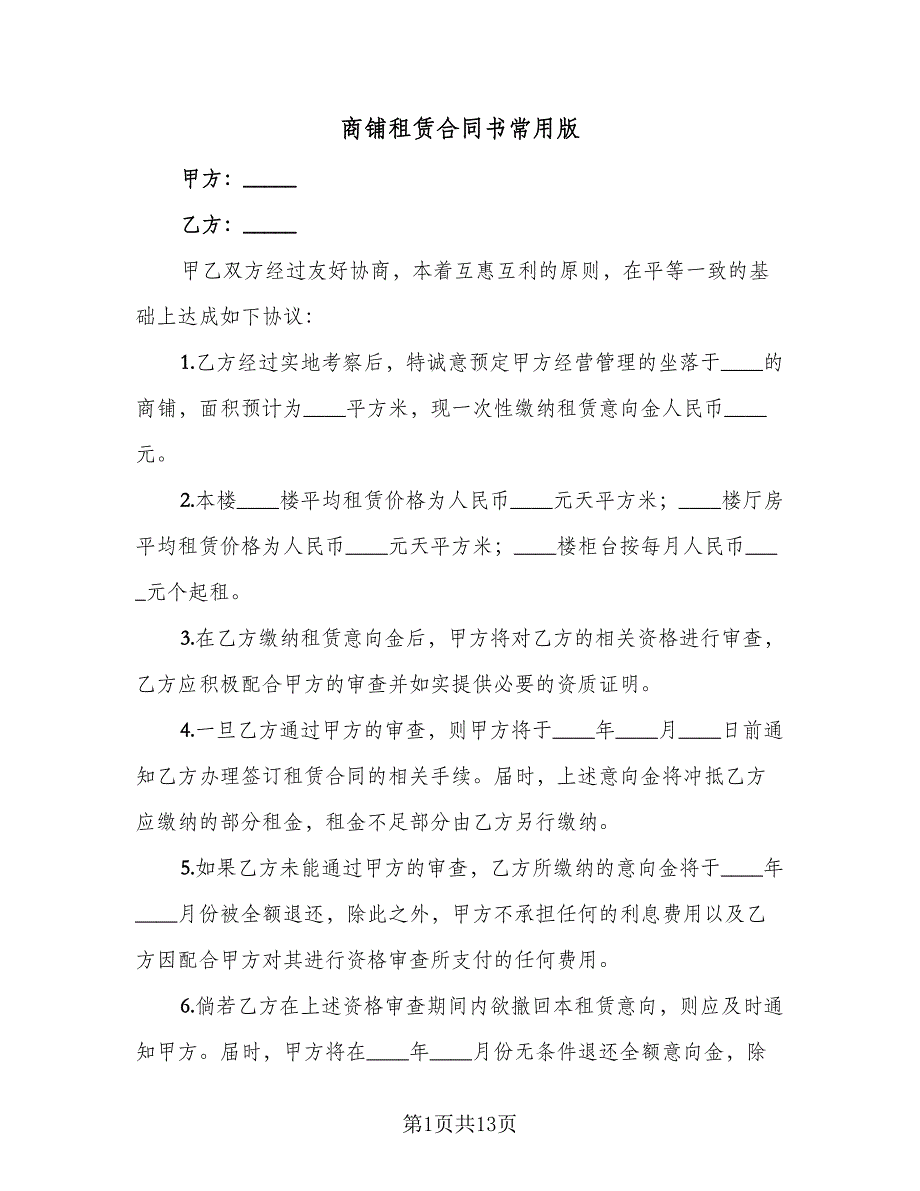 商铺租赁合同书常用版
甲方：_____
乙方：_____
甲乙双方经过友好协商，本着互惠互利的原则，在平等一致的基
础上达成如下协议：
1.乙方经过实地考察后，特诚意预定甲方经营管理的坐落于____的
商铺，面积预计为____平方米，现一次性缴纳租赁意向金人民币____
元。
2.本楼____楼平均租赁价格为人民币____元天平方米；____楼厅房
平均租赁价格为人民币____元天平方米；____楼柜台按每月人民币___
_元个起租。
3.在乙方缴纳租赁意向金后，甲方将对乙方的相关资格进行审查，
乙方应积极配合甲方的审查并如实提供必要的资质证明。
4.一旦乙方通过甲方的审查，则甲方将于____年____月____日前通
知乙方办理签订租赁合同的相关手续。届时，上述意向金将冲抵乙方
应缴纳的部分租金，租金不足部分由乙方另行缴纳。
5.如果乙方未能通过甲方的审查，乙方所缴纳的意向金将于____年
____月份被全额退还，除此之外，甲方不承担任何的利息费用以及乙
方因配合甲方对其进行资格审查所支付的任何费用。
6.倘若乙方在上述资格审查期间内欲撤回本租赁意向，则应及时通
知甲方。届时，甲方将在____年____月份无条件退还全额意向金，除
第1页共13页